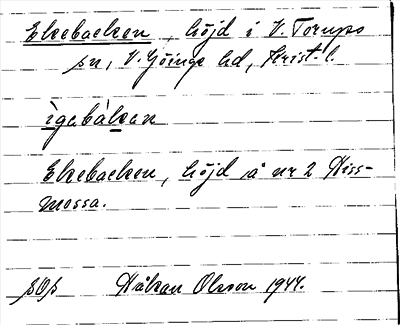 Ekebacken, höjd i V. Torups
sn, V. Göinge hd, Krist. l.
ìgabàkan
Ekebacken, höjd å nr 2 Hiss-
mossa.
Håkan Olsson 1944.